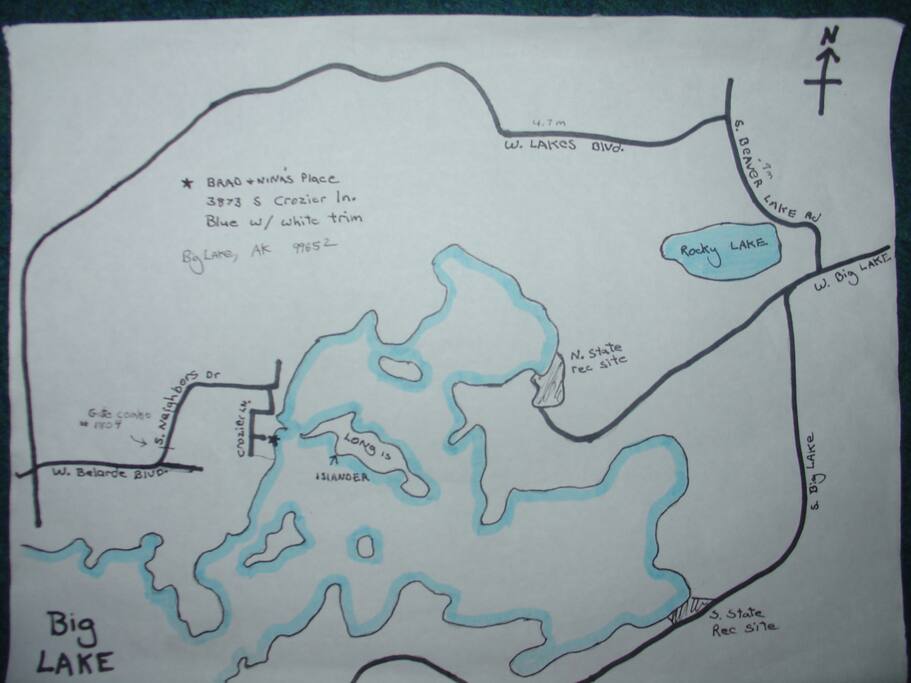 N
4.7m
W. LAKES BLVD.
S. BEAVER LAKE RD
.7m
★ BRAD + NINA'S PLACE
3873 S Crozier Ln.
Blue w/ white trim
Big Lake, AK 99652
Rocky LAKE
W. Big LAKE
N. State
rec site
S. Neighbors Dr
Gate combo
Crozier Ln.
W. Belarde BLVD.
LONG IS
ISLANDER
S. Big LAKE
S. State
Rec Site
Big
LAKE